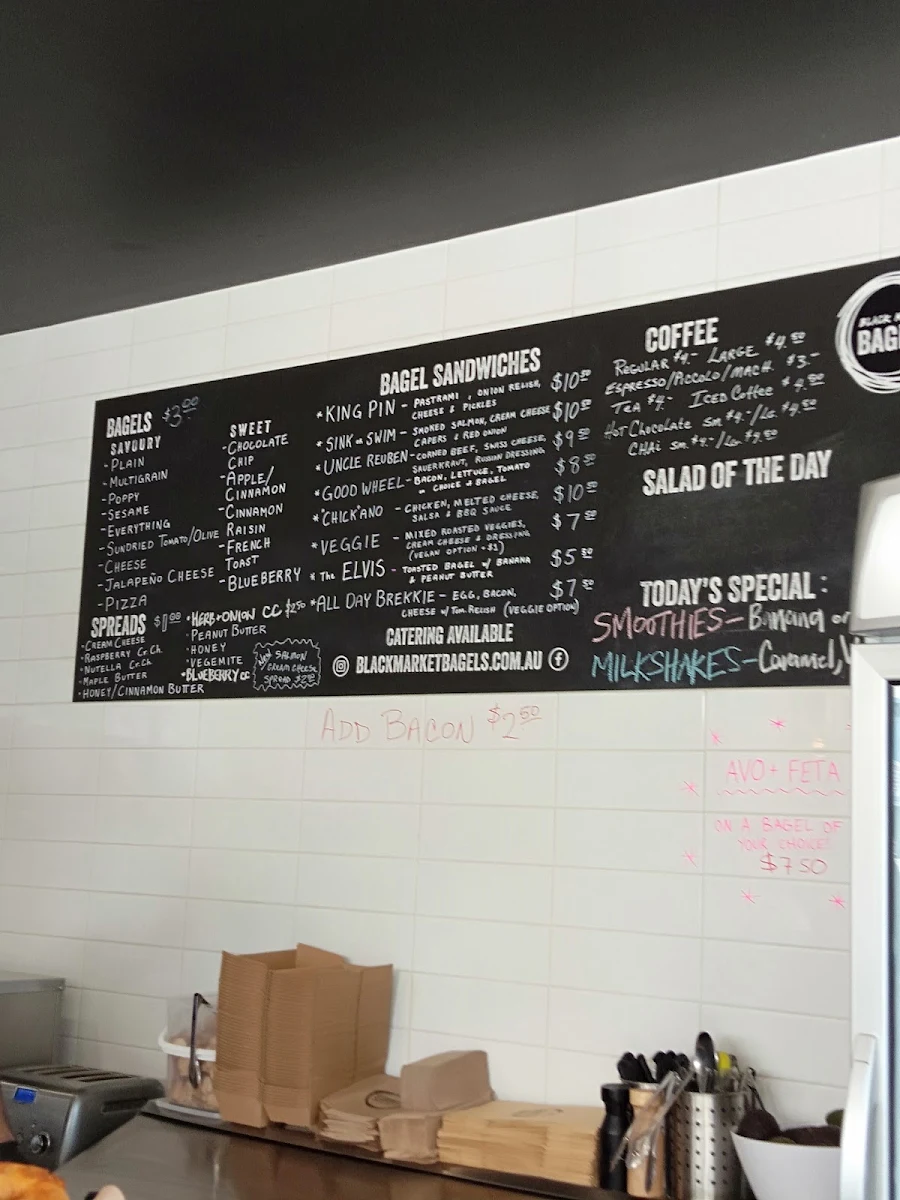 BAGELS $3.00
SAVOURY
- PLAIN
- MULTIGRAIN
- POPPY
- SESAME
- EVERYTHING
- SUNDRIED TOMATO/OLIVE
- CHEESE
- JALAPEÑO CHEESE
- PIZZA
SWEET
- CHOCOLATE
CHIP
- APPLE/
CINNAMON
- CINNAMON
RAISIN
- FRENCH
TOAST
- BLUEBERRY
SPREADS $1.00
• CREAM CHEESE
• RASPBERRY Cr.Ch.
• NUTELLA Cr.Ch.
• MAPLE BUTTER
• HONEY/CINNAMON BUTTER
• HERB + ONION CC $2.50
• PEANUT BUTTER
• HONEY
• VEGEMITE
• BLUEBERRY CC
SALMON
CREAM CHEESE
SPREAD
BAGEL SANDWICHES
* KING PIN - PASTRAMI, ONION RELISH, $10.50
CHEESE & PICKLES
* SINK or SWIM - SMOKED SALMON, CREAM CHEESE $10.50
CAPERS & RED ONION
* UNCLE REUBEN - CORNED BEEF, SWISS CHEESE, $9.50
SAUERKRAUT, RUSSIAN DRESSING
* GOOD WHEEL - BACON, LETTUCE, TOMATO $8.50
CHOICE BAGEL
* "CHICK"ANO - CHICKEN, MELTED CHEESE, $10.50
SALSA & BBQ SAUCE
* VEGGIE - MIXED ROASTED VEGGIES, $7.50
CREAM CHEESE & DRESSING
(VEGAN OPTION +$1)
* The ELVIS - TOASTED BAGEL w/ BANANA $5.50
& PEANUT BUTTER
* ALL DAY BREKKIE - EGG, BACON, $7.50
CHEESE w/ Tom. RELISH (VEGGIE OPTION)
CATERING AVAILABLE
BLACKMARKETBAGELS.COM.AU
COFFEE
REGULAR $4.- LARGE $4.50
ESPRESSO/PICCOLO/MACH. $3.-
TEA $4.- ICED COFFEE $4.50
HOT CHOCOLATE Sm. $4.-/LG. $4.50
CHAI Sm. $4.-/LG. $4.50
SALAD OF THE DAY
TODAY'S SPECIAL:
SMOOTHIES - Banana or
MILKSHAKES - Caramel,
BLACK
BAG
ADD BACON $2.50
AVO + FETA
ON A BAGEL OF
YOUR CHOICE!
$7.50